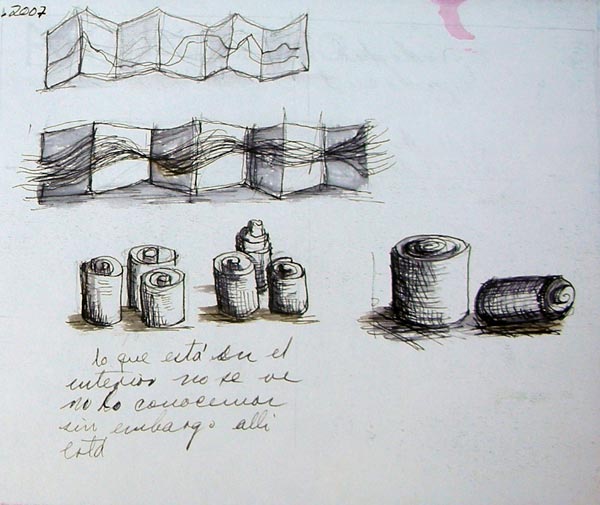 2007
lo que está en el
interior no se ve
no lo conocemos
sin embargo alli
está